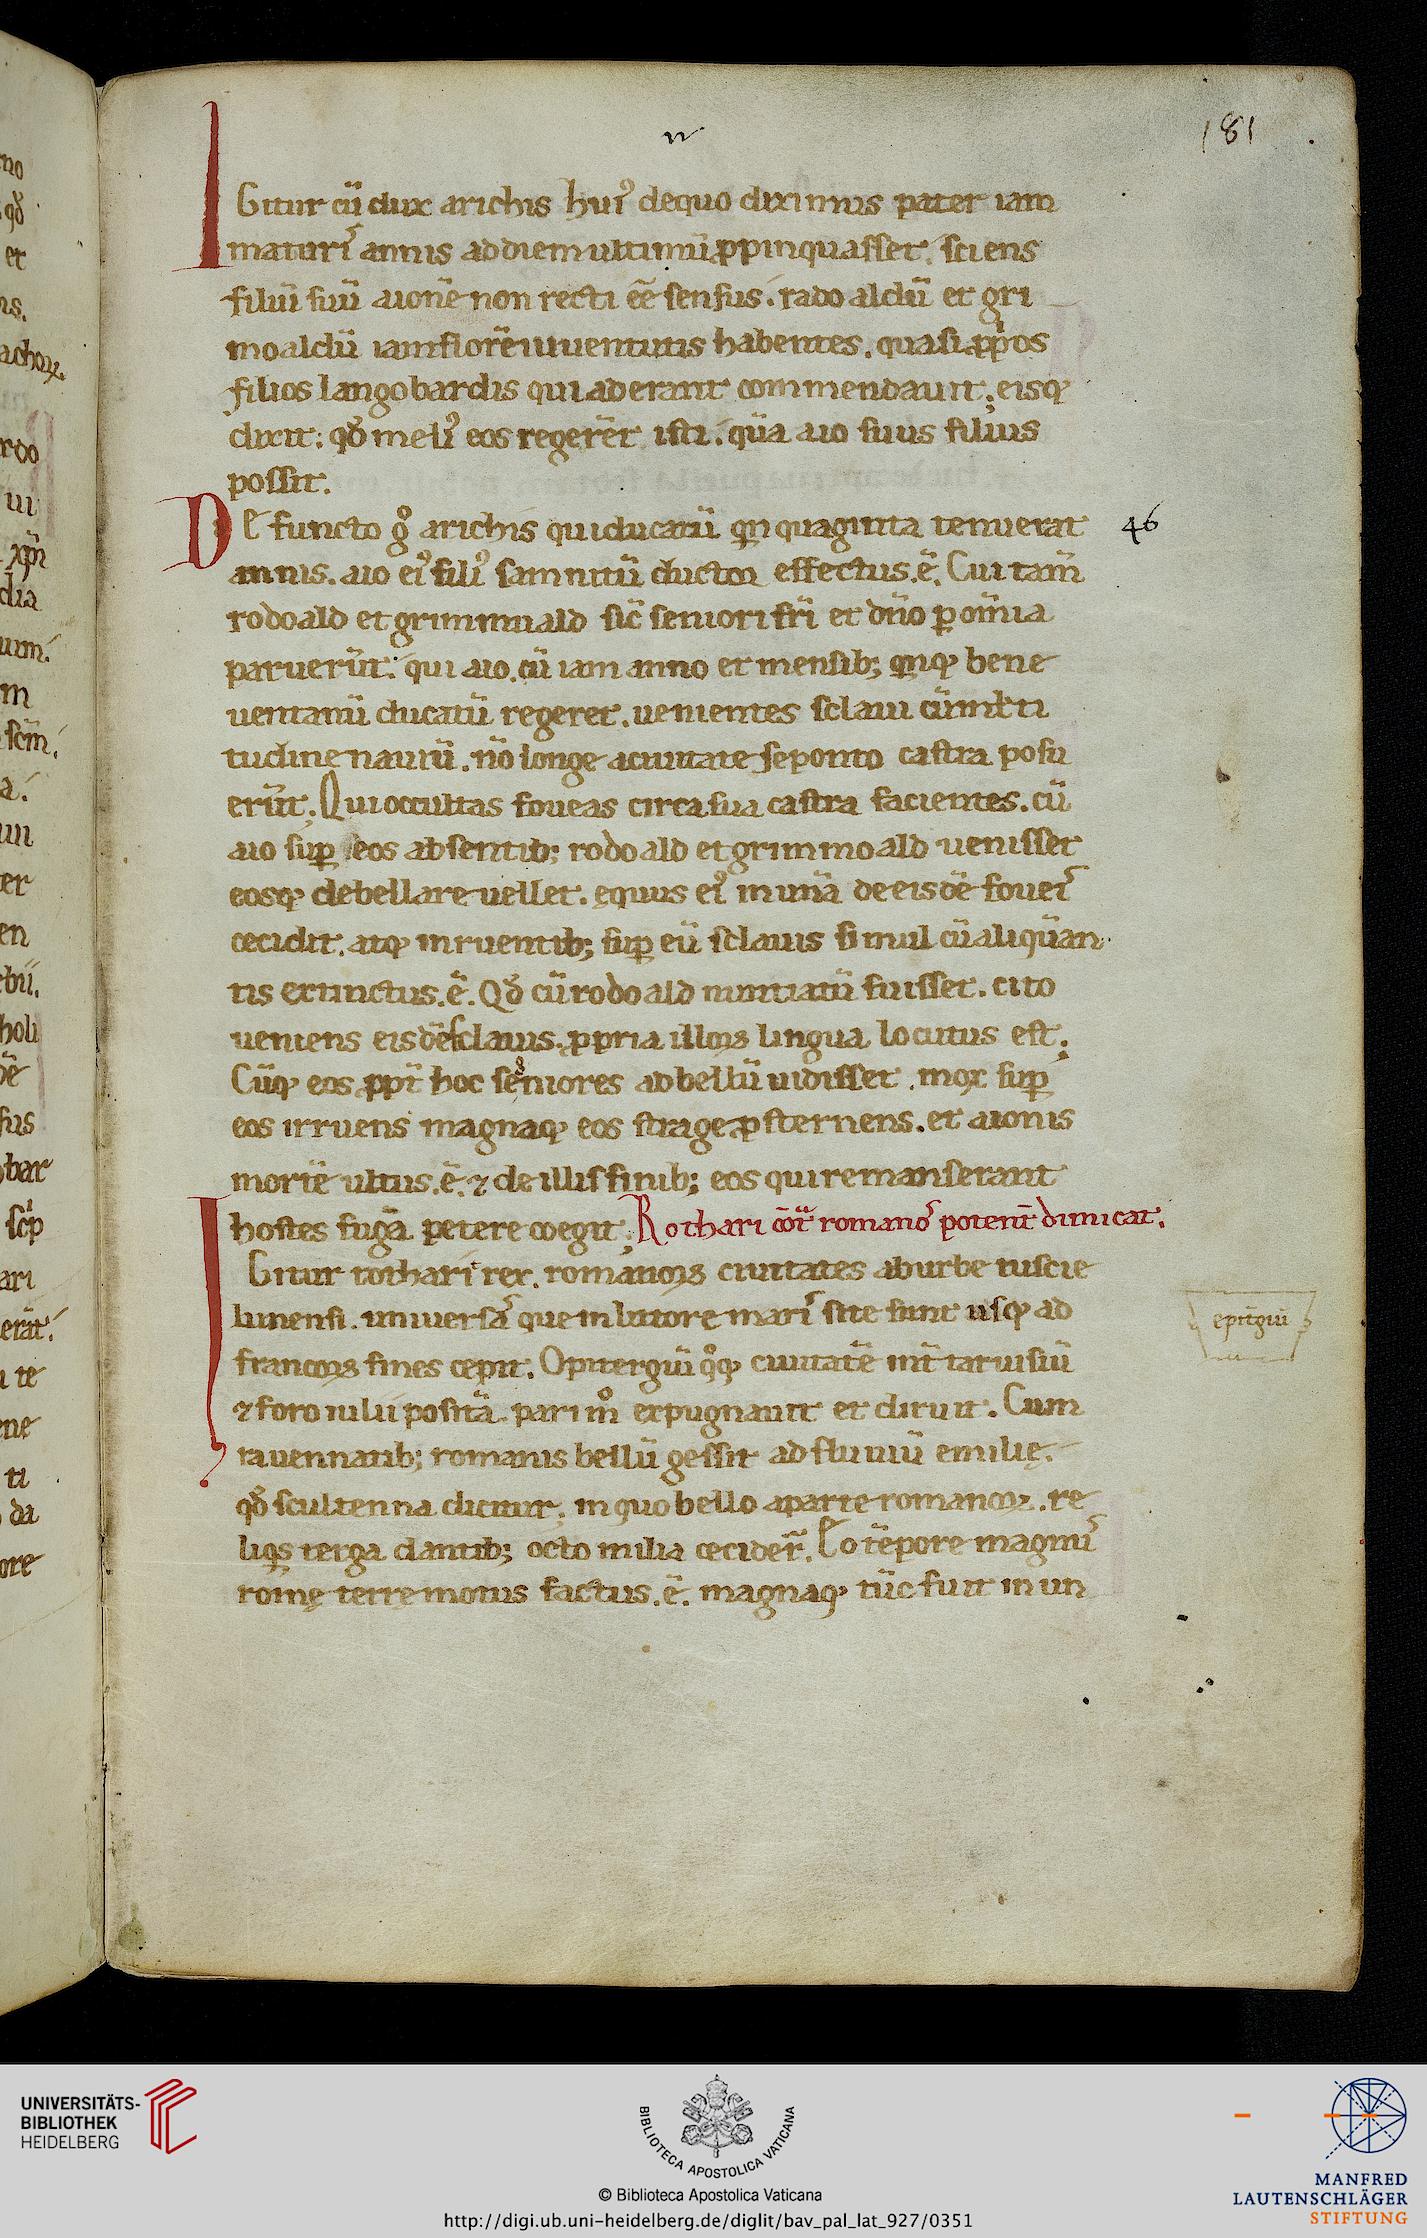 IIII
181
IGitur cū dux arichis hui᷒ dequo diximus pater iam
maturi᷒ annis addiem ultimū ꝓpinquasset. sciens
filiū suū aionē non recti eē sensus. radoaldū et gri
moaldū iam florē iuuentutis habentes. quasi ꝓpos
filios langobardis qui aderant commendauit. eisq;
dixit: qđ meli᷒ eos regerēt isti. quā aio suus filius
possit.
DE functo gͦ arichis qui ducatū qnquaginta tenuerat
46
annis. aio ei᷒ fili᷒ samnitū ductor effectus.ē. Cui tam̄
rodoald et grimmuald sic̄ seniori fr̄i et dn̄o ꝑ om̄ia
paruerūt: qui aio. cū iam anno et mensib; qnq; bene
uentanū ducatū regeret. uenientes sclaui cū multi
tudine nauiū. nō longe aciuitate seponto castra posu
erūt. Qui occultas foueas circa sua castra facientes. cū
aio suꝑ eos absentib; rodoald et grimmoald uenisset
eosq; debellare uellet. ęquus ei᷒ in unā de eisdē fouei᷒
cecidit. atq; inruentib; suꝑ eū sclauis simul cū aliquan
tis extinctus.ē. Qđ cū rodoald nuntiatū fuisset. cito
ueniens eisdē sclauis. ꝓpria illoꝝ lingua locutus est.
Cūq; eos ꝓpt̄ hoc segniores ad bellū uidisset. mox suꝑ
eos irruens magnaq; eos strage ꝓsternens. et aionis
mortē ultus.ē. ⁊ de illis finib; eos qui remanserant
hostes fugā petere coegit. Rothari cōt̄ romano᷒ potent̄ dimicat.
IGitur rothari rex. romanoꝝ ciuitates ab urbe tuscie
lunensi. uniuersa᷒ que in litore mari᷒ site sunt usq; ad
francoꝝ fines cepit. Opitergiū qͦq; ciuitatē int̄ taruisiū
epit̄giū
⁊ foro iulii positā. pari mͦ expugnauit et diruit. Cum
rauennatib; romanis bellū gessit ad fluuiū emilię.
qđ scultenna dicitur. in quo bello a parte romanoꝝ. re
liqs terga dantib; octo milia cecider̄. Eo tēpore magnu᷒
romę terrę motus factus.ē. magnaq; tūc fuit in un
UNIVERSITÄTS-
BIBLIOTHEK
HEIDELBERG
BIBLIOTECA APOSTOLICA VATICANA
© Biblioteca Apostolica Vaticana
http://digi.ub.uni-heidelberg.de/diglit/bav_pal_lat_927/0351
MANFRED
LAUTENSCHLÄGER
STIFTUNG